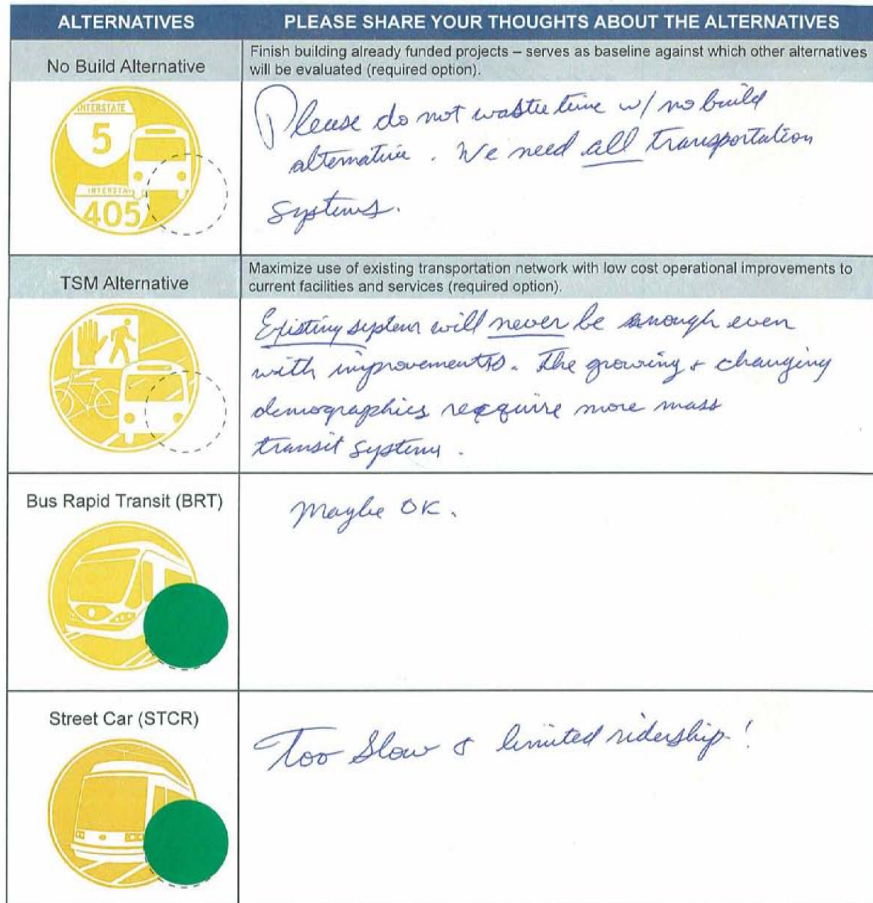 ALTERNATIVES
PLEASE SHARE YOUR THOUGHTS ABOUT THE ALTERNATIVES
No Build Alternative
Finish building already funded projects – serves as baseline against which other alternatives
will be evaluated (required option).
INTERSTATE
5
INTERSTATE
405
Please do not waste time w/ no build
alternative. We need all transportation
systems.
TSM Alternative
Maximize use of existing transportation network with low cost operational improvements to
current facilities and services (required option).
Existing system will never be enough even
with improvements. The growing & changing
demographics require more mass
transit systems.
Bus Rapid Transit (BRT)
Maybe OK.
Street Car (STCR)
Too Slow & limited ridership!